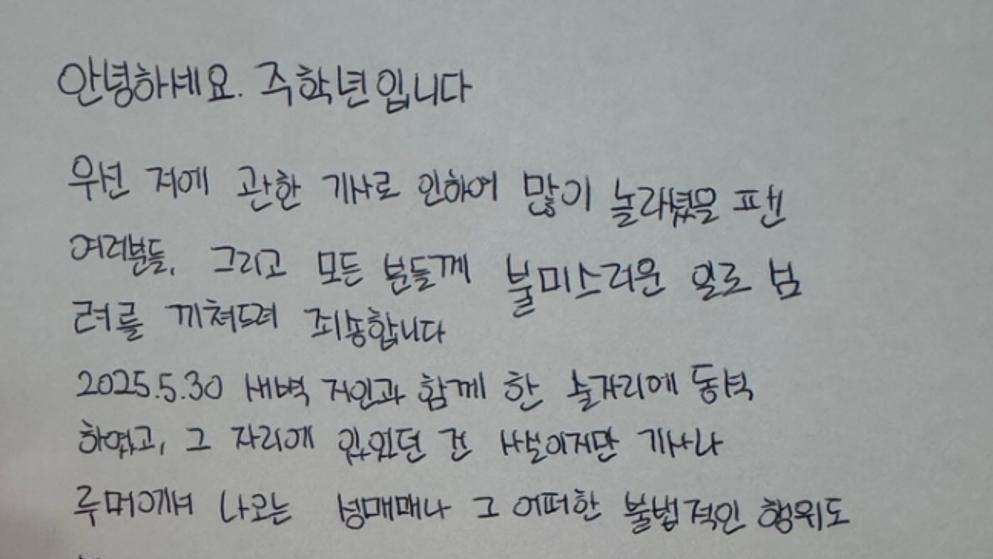 안녕하세요. 주학년입니다
우선 저에 관한 기사로 인하여 많이 놀라셨을 팬
여러분들, 그리고 모든 분들께 불미스러운 일로 심
려를 끼쳐드려 죄송합니다
2025.5.30 새벽 지인과 함께 한 술자리에 동석
하였고, 그 자리에 있었던 건 사실이지만 기사나
루머에서 나오는 성매매나 그 어떠한 불법적인 행위도